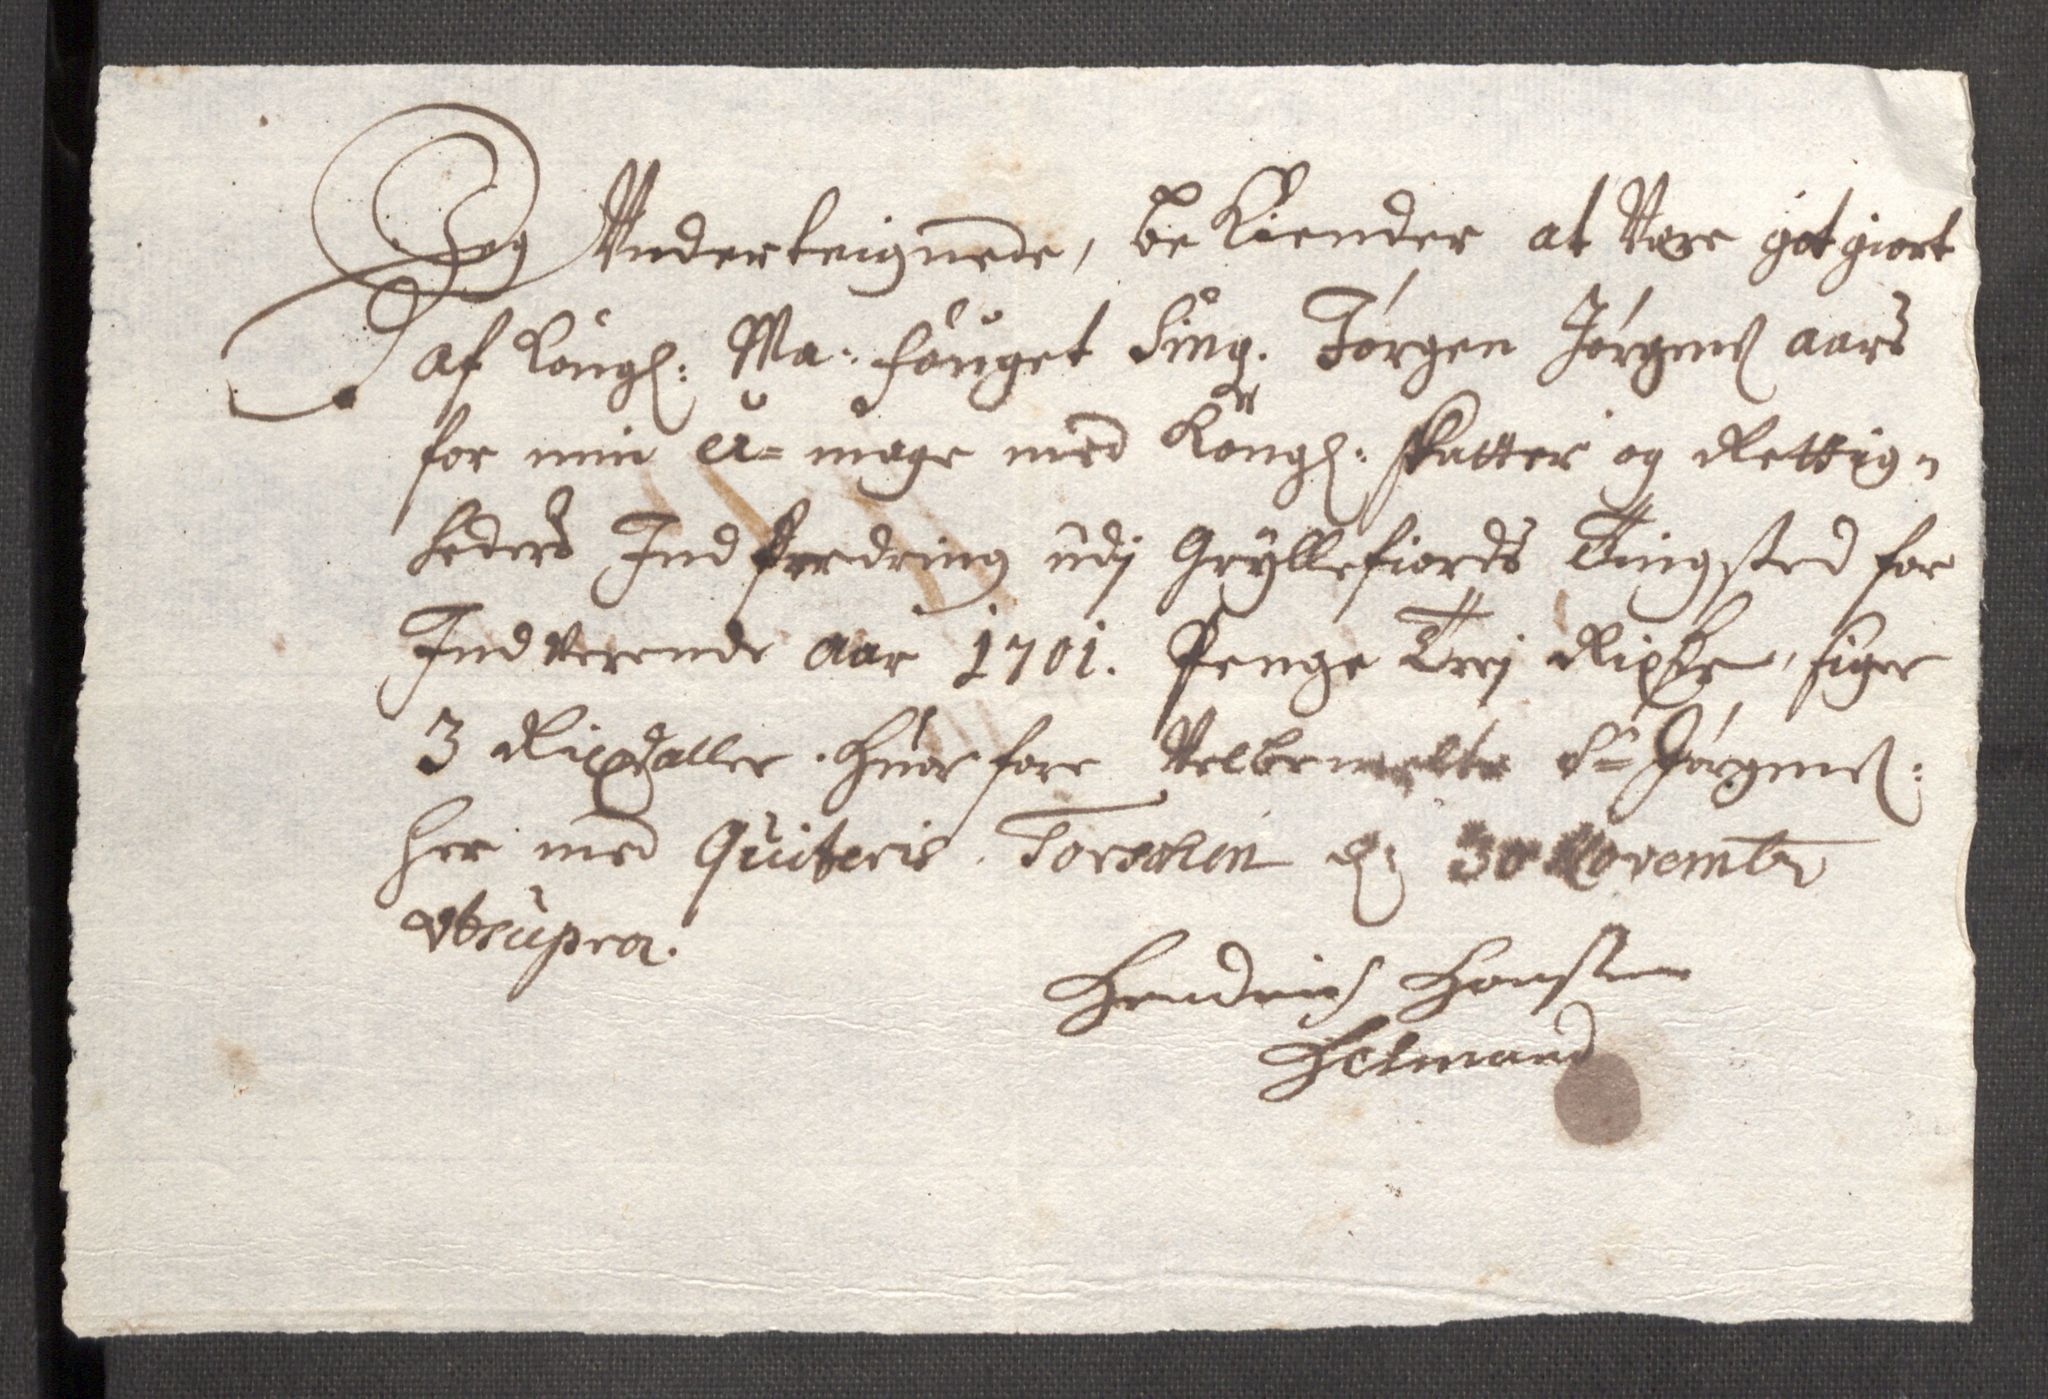 Jeg Underteignede, be Kiender at Vere got giort
af Kongl: Ma: fouget Sing. Jørgen Jørgens aars
for min u=mage med Kongl: skatter og Rettig=
heders Ind fordring udj Gryllefiords Tingsted for
Indverende aar 1701. Penge Trej Rixdr, siger
3 Rixdaller. Huor fore Velbemelte Sr Jørgens:
her med Quiteris. Torschen d: 30 Novembr
vtsupra.
Hendrich Hansen
Helmand